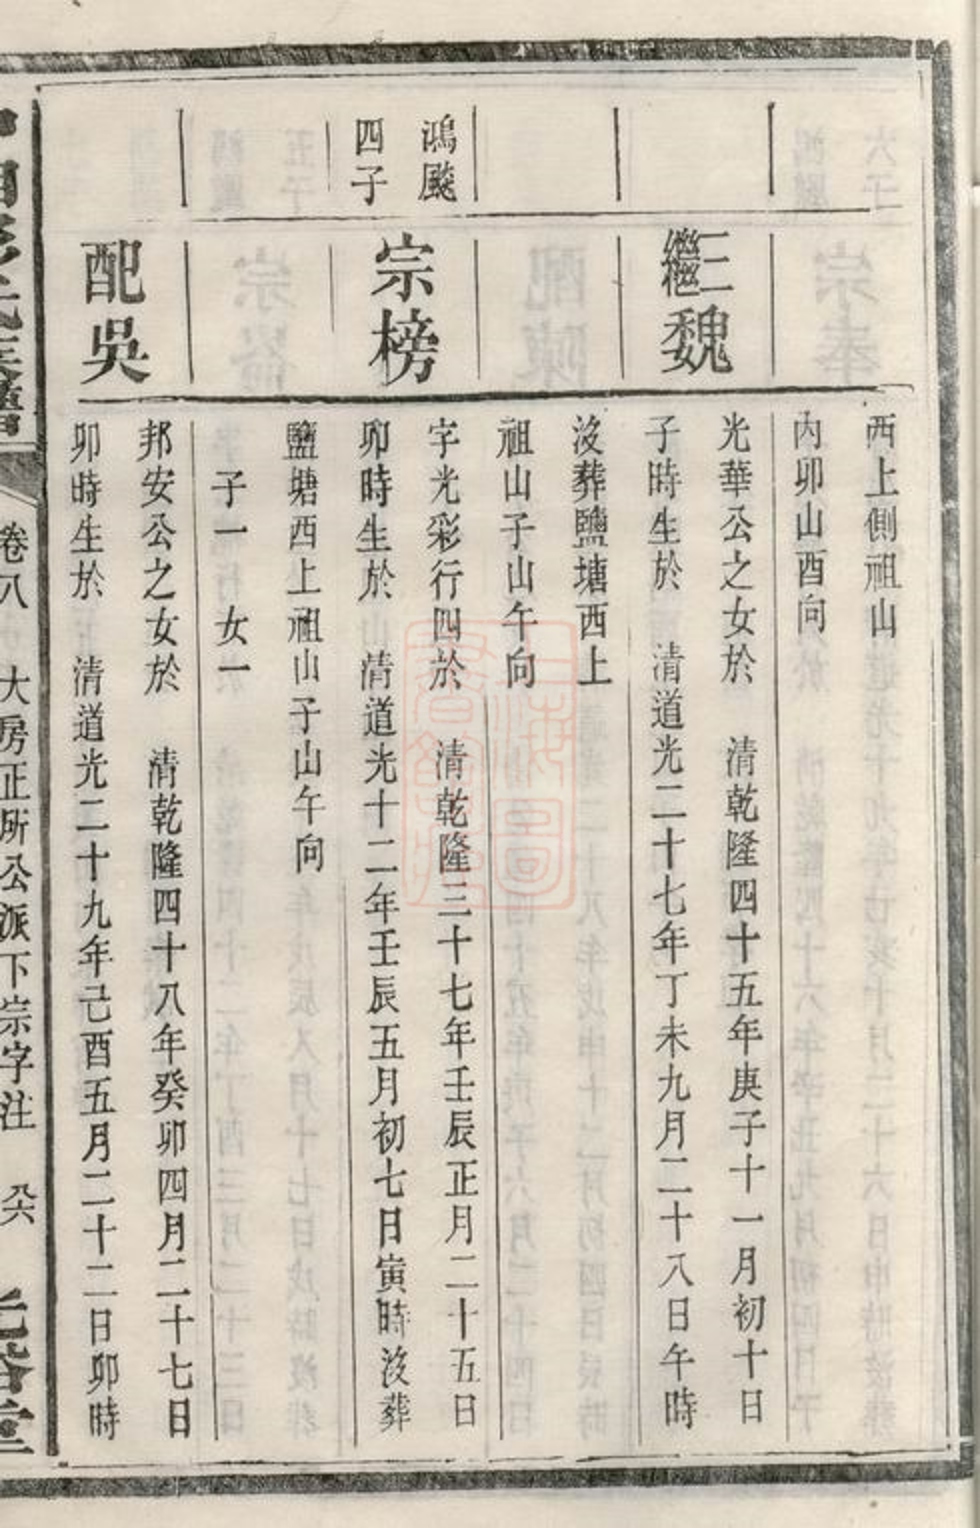 西上側祖山
內卯山酉向
三繼魏
光華公之女於 清乾隆四十五年庚子十一月初十日
子時生於 清道光二十七年丁未九月二十八日午時
沒葬鹽塘西上
祖山子山午向
鴻颷
四子
宗榜
字光彩行四於 清乾隆三十七年壬辰正月二十五日
卯時生於 清道光十二年壬辰五月初七日寅時沒葬
鹽塘西上祖山子山午向
子一 女一
配吳
邦安公之女於 清乾隆四十八年癸卯四月二十七日
卯時生於 清道光二十九年己酉五月二十二日卯時
卷八 大房正所公派下宗字注